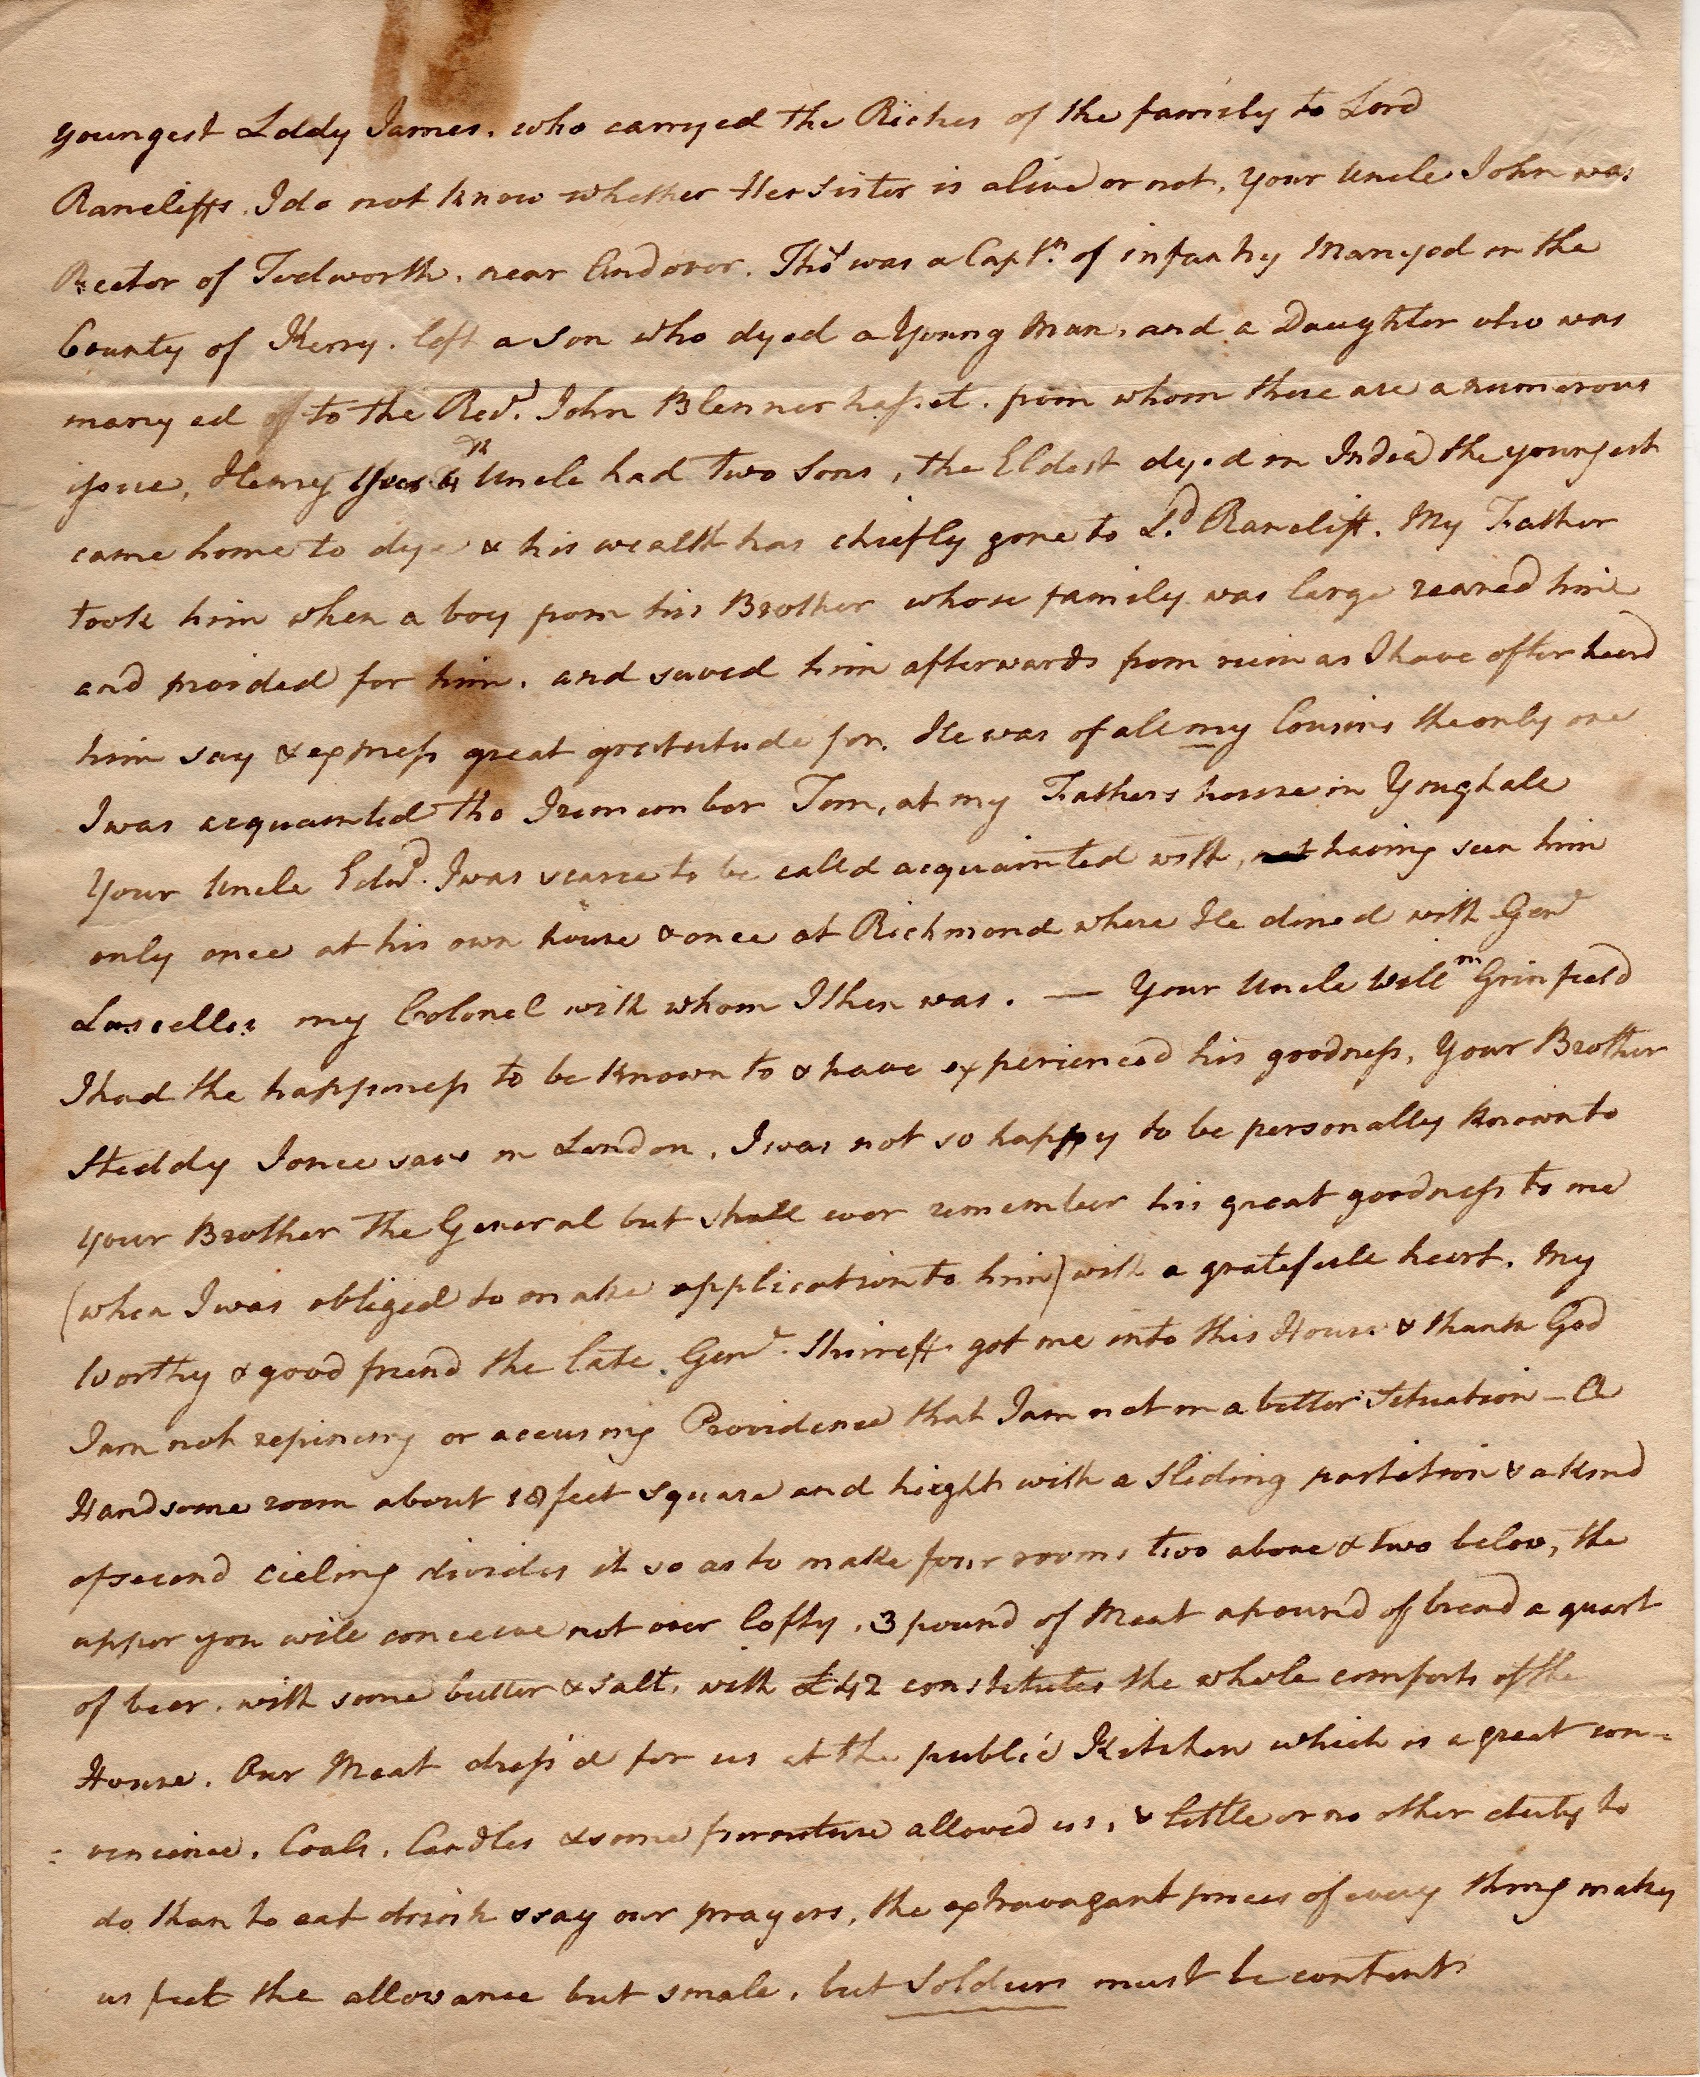 youngest Lady James. who carryed the Riches of the family to Lord
Rancliffs. I do not know whether Her Sister is alive or not, your Uncle John was
Rector of Tedworth. near Andover. Thos. was a Captn. of infantry Marryed in the
County of Kerry. left a Son who dyed a Young Man, and a Daughter who was
marryed to the Revd. John Blennerhasset. from whom there are a numerous
issue, Henry Your 4th Uncle had two Sons, the Eldest dyed in India the youngest
came home to dye & his wealth has chiefly gone to Ld. Rancliff. My Father
took him when a boy from his Brother whose family was large reared him
and provided for him. and saved him afterwards from ruin as I have often heard
him say & express great gratitude for. He was of all my Cousins the only one
I was acquainted tho I remember Tom, at my Fathers house in Youghall
Your Uncle Edwd. I was scarce to be calld acquainted with, having seen him
only once at his own house & once at Richmond where He dined with Genl
Lascelles my Colonel with whom I then was. — Your Uncle Willm Grinfield
I had the happiness to be known to & have experienced his goodness, Your Brother
Steddy I once saw in London, I was not so happy to be personally known to
your Brother the General but shall ever remember his great goodness to me
(when I was obliged to make application to him) with a gratefull heart. My
Worthy & good friend the late Genl. Shirreff got me into this House & thank God
I am not repining or accusing Providence that I am not in a better Situation - A
Handsome room about 18 feet square and hieght with a Sliding partition & a kind
of second cieling divides it so as to make four rooms two above & two below, the
upper you will conceive not over lofty. 3 pound of Meat a pound of bread a quart
of beer. with some butter & salt. with £42 constitutes the whole comforts of the
House. Our Meat dress'd for us at the public Kitchen which is a great con=
=venience. Coals, Candles & some furniture allowed us, & little or no other duty to
do than to eat drink & say our prayers, the extravagant prices of every thing makes
us feel the allowance but small. but Soldiers must be content